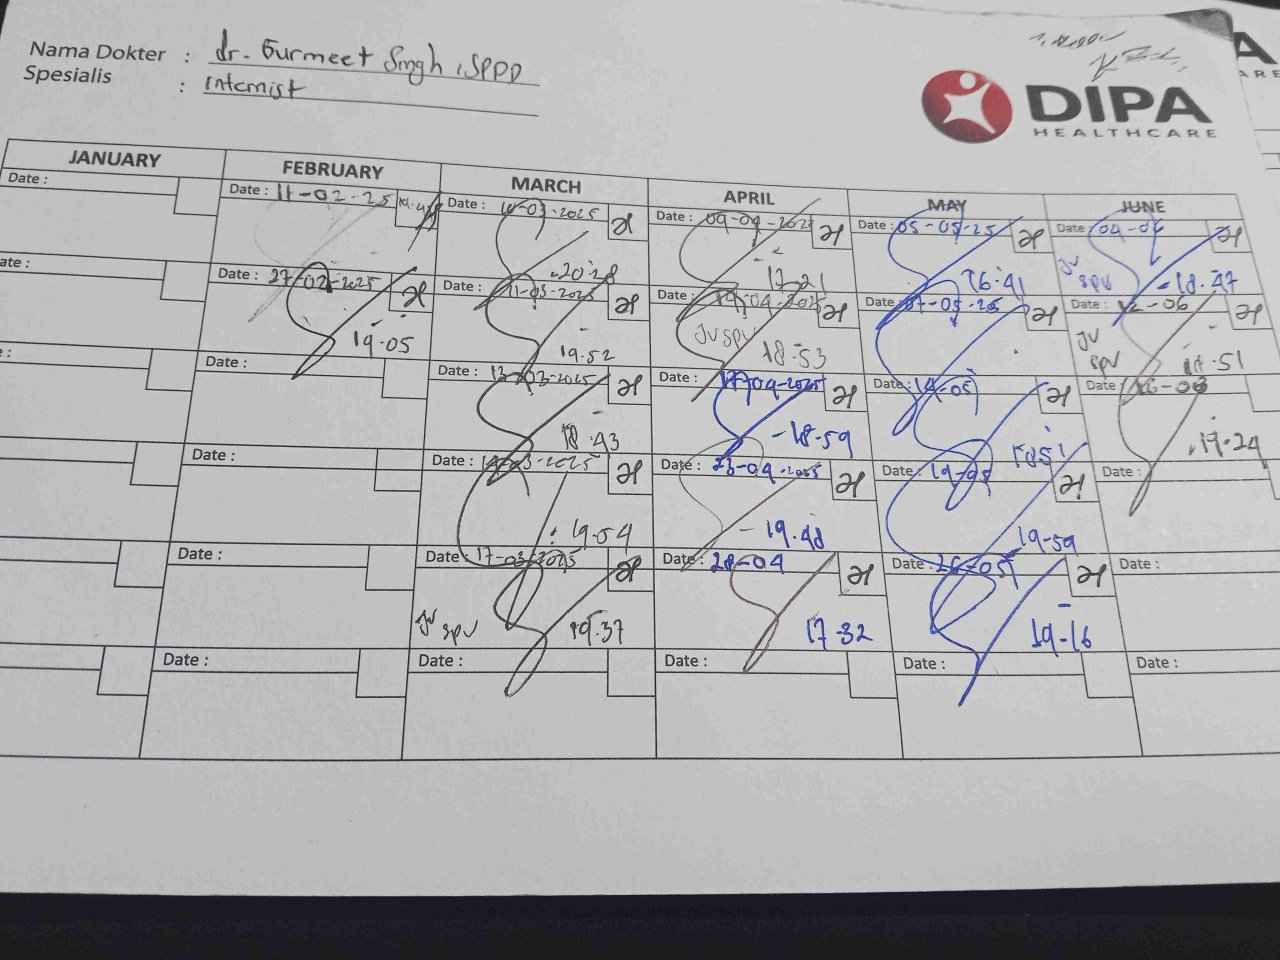 Nama Dokter : dr. Gurmeet Singh, SpPD
Spesialis : Internist
DIPA
HEALTHCARE
A
ARE
JANUARY FEBRUARY MARCH APRIL MAY JUNE
Date : Date : 11-02-25 Date : -03-2025 Date : 09-04-2025 Date : 05-05-25 Date : 04-06
20.28 17.21 16.41 JV SPV 18.47
ate : Date : 27-02-2025 Date : 11-03-2025 Date : -04-2025 Date : 07-05-25 Date : -06
19.05 19.52 JV SPV 18.53 JV SPV .51
: Date : Date : 13-03-2025 Date : 17-04-2025 Date : 14-05 Date : -06
18.43 -18-59 19.24
Date : Date : -03-2025 Date : 23-04-2025 Date : 19-05 Date :
19.54 19.48 19-59
Date : Date : 17-03-2025 Date : 28-04 Date : 26-05 Date :
JV SPV 19.37 17.32 19-16
Date : Date : Date : Date : Date :